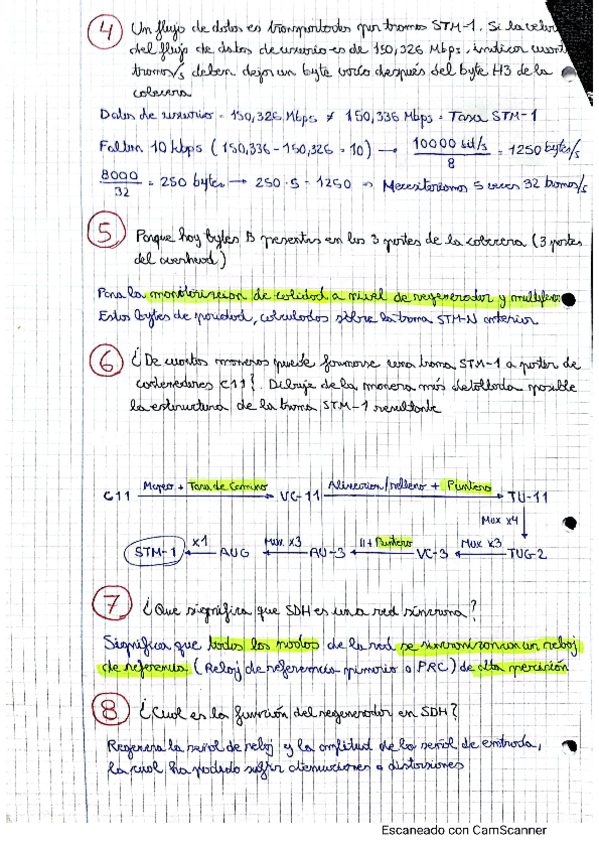 4 Un flujo de datos es transportado por tramas STM-1. Si la veloc
del flujo de datos de usuario es de 150,326 Mbps, indicar cuant
tramas/s deben dejar un byte vacío después del byte H3 de la
cabecera
Datos de usuario = 150,326 Mbps ≠ 150,336 Mbps = Tasa STM-1
Faltan 10 kbps (150,336 - 150,326 = 10) → 10000 bit/s / 8 = 1250 bytes/s
8000 / 32 = 250 bytes → 250 · 5 = 1250 → Necesitaríamos 5 veces 32 tramas/s
5 Porque hay bytes B presentes en las 3 partes de la cabecera (3 partes
del overhead)
Para la monitorización de calidad a nivel de regenerador y multiplexor
Estos bytes de paridad, calculados sobre la trama STM-N anterior
6 ¿De cuantas maneras puede formarse una trama STM-1 a partir de
contenedores C11?. Dibuje de la manera más detallada posible
la estructura de la trama STM-1 resultante
C11 Mapeo + Tara de Camino → VC-11 Alineacion/relleno + Puntero → TU-11
Mux x4
STM-1 ← x1 AUG ← Mux x3 AU-3 ← 11+Puntero VC-3 ← Mux x3 TUG-2
7 ¿Que significa que SDH es una red síncrona?
Significa que todos los nodos de la red se sincronizan con un reloj
de referencia (Reloj de referencia primario o PRC) de alta precisión
8 ¿Cual es la función del regenerador en SDH?
Regenera la señal de reloj y la amplitud de la señal de entrada,
la cual ha podido sufrir atenuaciones o distorsiones
Escaneado con CamScanner